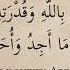 بِاللَّهِ وَقُدْرَتِهِ
مَا أَجِدُ وَأُحَ